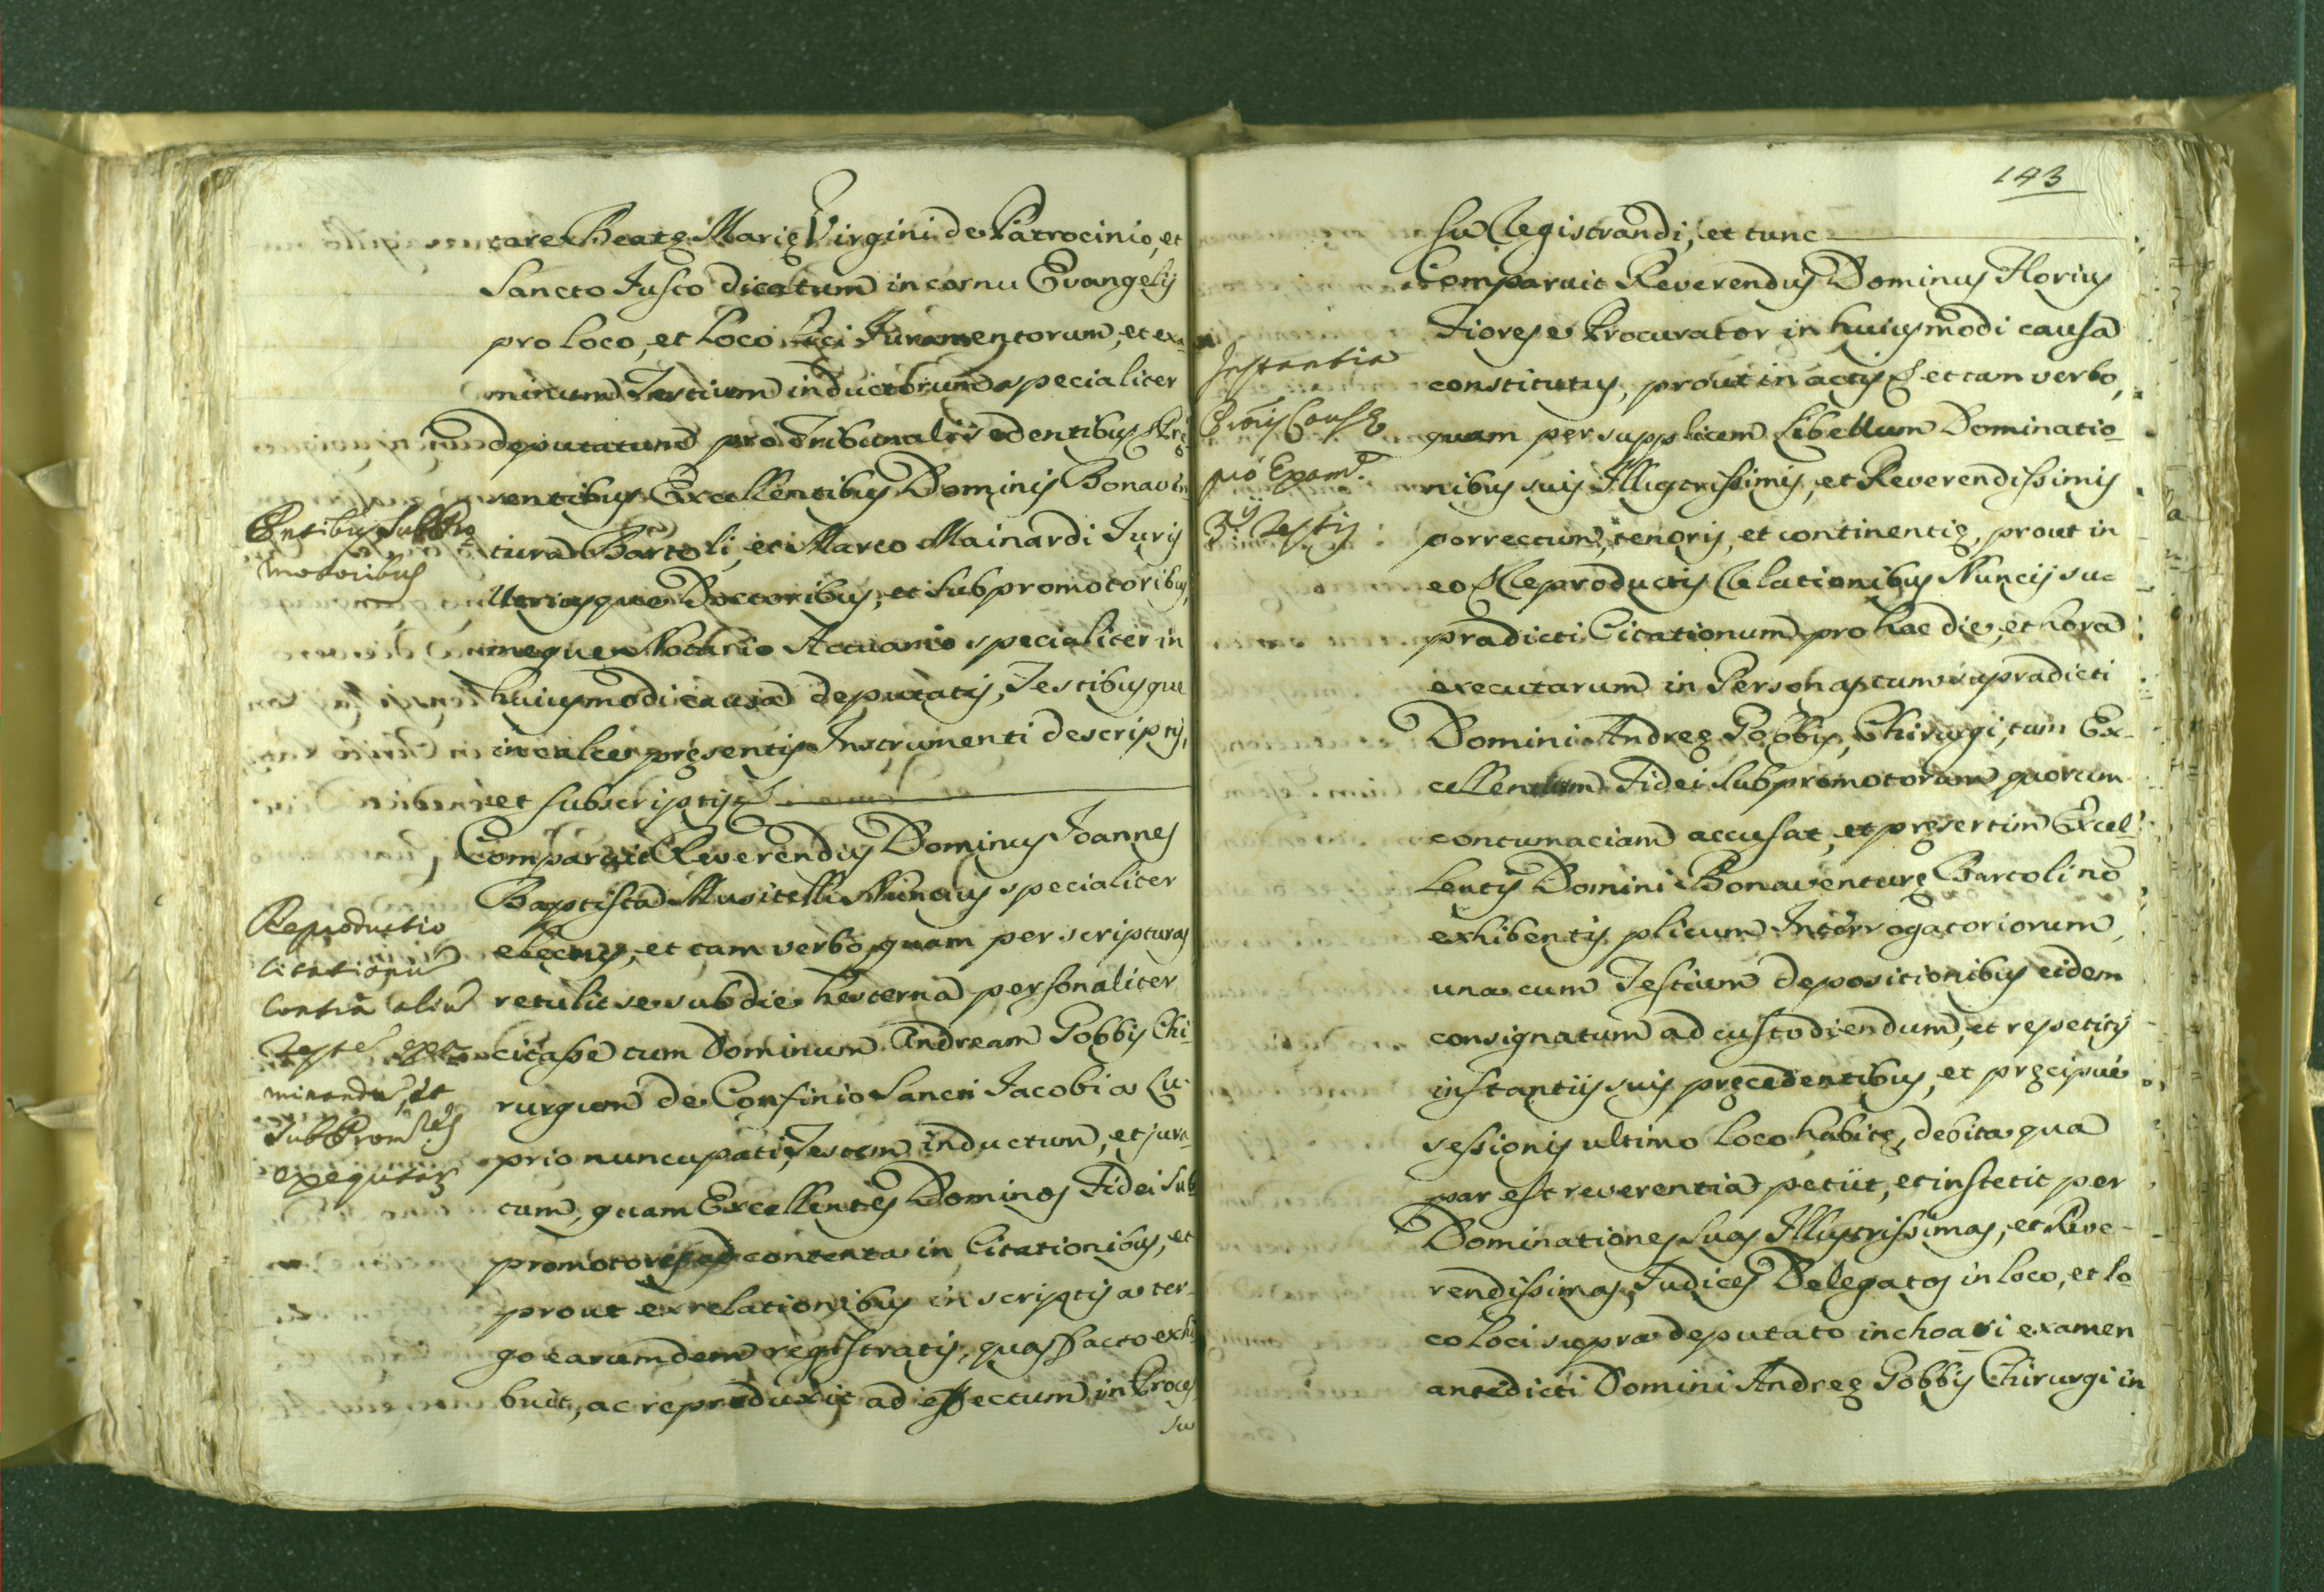 tare Beatę Marię Virgini de Patrocinio, et
Sancto Justo dicatum in cornu Evangelij
pro loco, et loco loci Juramentorum, et exa-
minum Testium inductorum specialiter
deputatum pro Tribunali sedentibus Pre-
sentibus Excellentibus Dominis Bonaven
Pntibus SubPro
motoribus
tura Bartoli, et Marco Mainardi Juris
Utriusque Doctoribus, et Subpromotoribus,
meque Notario Actuario specialiter in
huiusmodi causa deputatis, Testibusque
in calce pręsentis Instrumenti descriptis,
et subscriptis
Comparuit Reverendus Dominus Joannes
Baptista Musitelli Nuncius specialiter
Reproductio
Citationu
Contra aliu
Testes exa
minandu, et
SubPromres
exequutar
electus, et tam verbo, quam per scripturas
retulit se sub die hesterna personaliter
citasse tum Dominum Andream Gobbis Chi-
rurgum de Confinio Sancti Jacobi a Lu-
prio nuncupati, Testem inductum, et jura-
tum, quam Excellentes Dominos Fidei Sub
promotores ad contenta in Citationibus, et
prout ex relationibus in scriptis a ter-
go earumdem registratis, quas facto exhi
buit, ac reproduxit ad effectum in Proces
su
143
su Registrandi, et tunc
Comparuit Reverendus Dominus Florius
Fiorese Procurator in huiusmodi causa
Instantia
Pronis Causę
pro Exam.
3ij Testis
constitutus, prout in actis et tam verbo,
quam per supplicem libellum Dominatio-
nibus suis Illustrissimis, et Reverendissimis
porrectum, tenoris, et continentię, prout in
eo Reproductis Relationibus Nuncij su-
pradicti Citationum pro hac die, et hora
executarum in Personas tum supradicti
Domini Andreę Gobbis, Chirurgi, tum Ex-
cellentium Fidei Subpromotorum quorum
contumaciam accusat, et pręsertim Excel-
lentis Domini Bonaventurę Bartoli no
exhibentis plicum Interrogatoriorum,
una cum Testium depositionibus eidem
consignatum ad custodiendum, et repetitis
instantijs suis pręcedentibus, et pręcipue
sessionis ultimo loco habitę, debita qua
par est reverentia petijt, et institit per
Dominationes suas Illustrissimas, et Reve-
rendissimas, Judices Delegatos in loco, et lo
co loci supra deputato inchoari examen
antedicti Domini Andreę Gobbis Chirurgi in